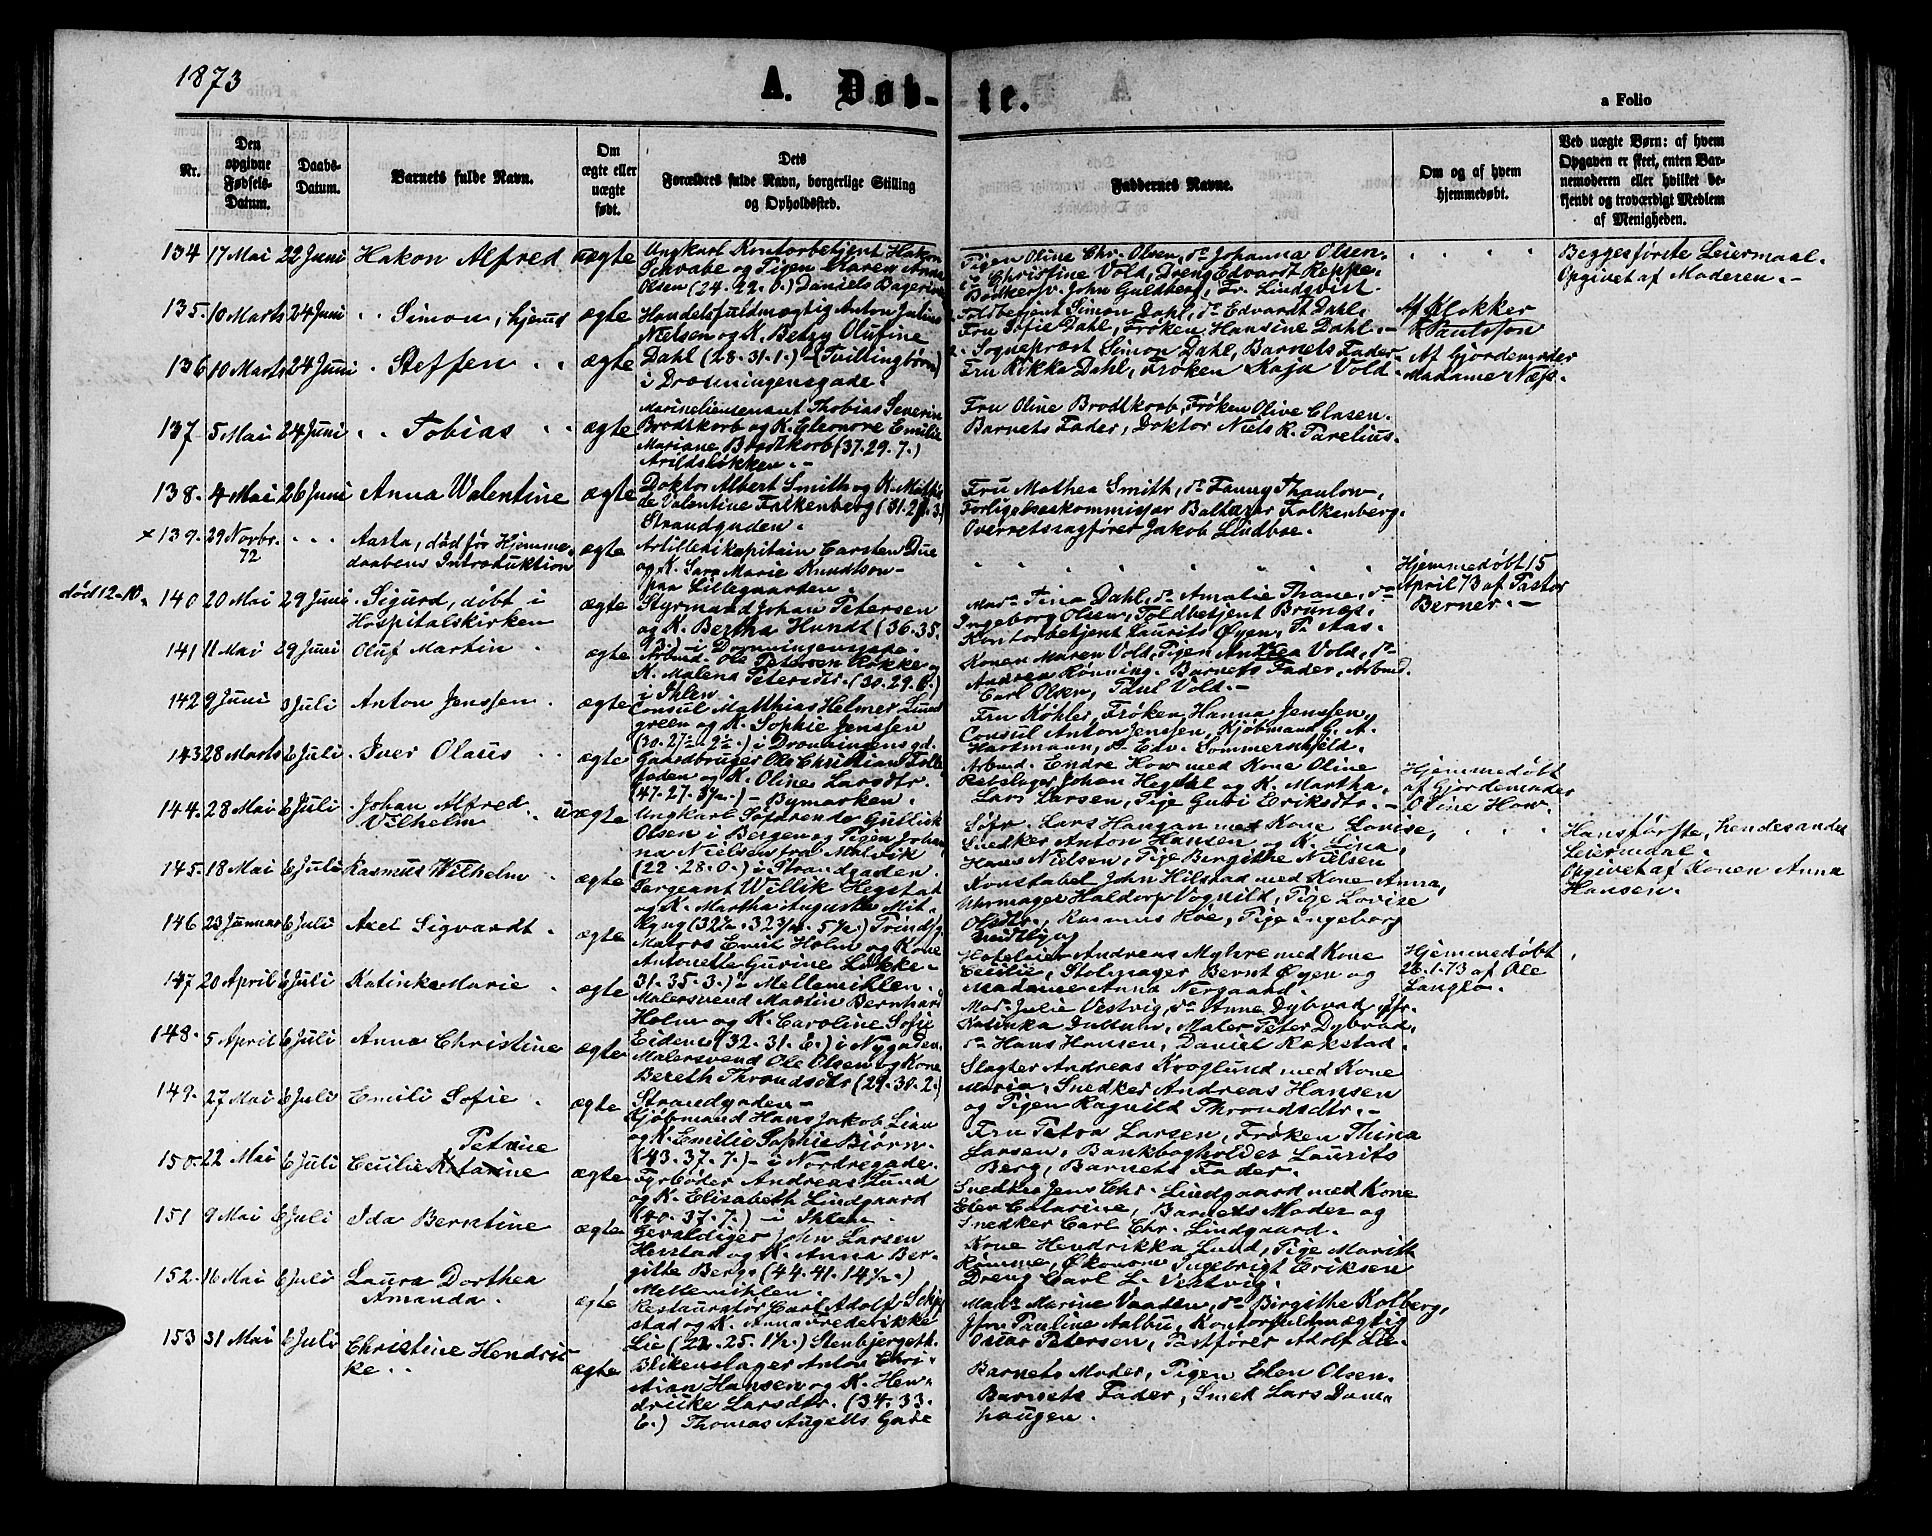 1873
A. Døb-
-te.
a Folio
Nr.
Den
opgivne
Fødsels-
Datum.
Daabs-
Datum.
Barnets fulde Navn.
Om
ægte eller
uægte
født.
Dets
Forældres fulde Navn, borgerlige Stilling
og Opholdssted.
Faddernes Navne.
Om og af hvem
hjemmedøbt.
Ved uægte Børn: af hvem
Opgaven er skeet, enten Bar-
nemoderen eller hvilket be-
kjendt og troværdigt Medlem
af Menigheden.
134 17 Mai 22 Juni Hakon Alfred uægte
Ungkarl Kontorbetjent Hakon
Schwabe og Pigen Maren Anna
Olsen (24. 22. 0.) Daniels Bageriet
Pigen Oline Chr. Olsen, do Johanna Olsen.
do Christine Vold, Dreng Edvardt Reppe,
Bødkersv. John Guldberg, Fr. Lindqvist.
Begges første Leiermaal.
Opgivet af Moderen. -
135. 10 Marts 24 Juni Simon, hjemd ægte
Handelsfuldmægtig Anton Julius
Nielsen og K. Betzy Olufine
Toldbetjent Simon Dahl, do Edvardt Dahl,
Fru Sofie Dahl, Frøken Hansine Dahl. -
Af Klokker
Paulsson
136 10 Marts 24 Juni Steffen ægte
Dahl (28-31-1.) - (Tvillingbørn)
i Dronningensgade.
Sognepræst Simon Dahl, Barnets Fader
Fru Rikka Dahl, Frøken Kaja Vold -
Af Gjordemoder
Madame Næss.
137 5 Mai 24 Juni Tobias ægte
Marinelieutenant Thobias Severin
Brodtkorb og K. Eleonore Emilie
Mariane Brodtkorb (37. 29. 7.)
Arildsløkken. -
Fru Oline Brodtkorb, Frøken Olive Clasen.
Barnets Fader, Doktor Niels R. Parelius.
138. 4 Mai 26 Juni Anna Walentine ægte
Doktor Albert Smith og K. Mathil
de Valentine Falkenberg
Strandgaden.
Fru Mathea Smith, do Fanny Thaulow,
Forligelseskommissær Baltazar Falkenberg.
Overretssagfører Jakob Lindboe.
× 139. 29 Novbr. 72 Aasta, død før Hjemme-
daabens Introduktion ægte
Artillerikapitain Carsten Due
og K. Sara Marie Knudtson -
paa Lillegaarden
Hjemmedøbt 15
April 73 af Pastor
Berner. -
død 12-10. 140 20 Mai 29 Juni Sigurd, døbt i
Hospitalskirken ægte
Styrmand Johan Petersen
og K. Bertha Hundt (36. 35.
i Dronningensgade.
Mad. Tina Dahl, do Amalie Thane, do
Ingeborg Olsen, Toldbetjent Brunes.
Kontorbetjent Laurits Øyen, P. Aas.
141 11 Mai 29 Juni Oluf Martin ægte
Arbmd. Ole Petersen Røkke og
K. Malena Petersdtr. (30. 29. 6.)
i Ihlen
Konen Maren Vold, Pigen Anna Vold, do
Andrea Rønning. Barnets Fader, Arbmd.
Carl Olsen, Paul Vold. -
142 9 Juni 3 Juli Anton Jenssen ægte
Consul Matthias Helmer Lund
green og K. Sophie Jenssen
(30. 27½ 2½.) i Dronningensgd.
Fru Køhler, Frøken Hanna Jenssen,
Consul Anton Jenssen, Kjøbmand G. A.
Hartmann, do Edv. Sommerschield.
143 28 Marts 6 Juli Iver Olaus ægte
Gaardbruger Ole Christian
og K. Oline Larsdtr.
- Bymarken.
Arbmd. Endre How med Kone Oline
Rebslager Johan Hegdal og K. Martha.
Lars Larsen, Pige Guri Eriksdtr. -
Hjemmedøbt
af Gjordemoder
Oline How.
144. 28 Mai 6 Juli Johan Alfred
Vilhelm uægte
Ungkarl Søfarende Gullik
Olsen i Bergen og Pigen Johan
na Nielsen fra Malvik
(22-28-0.) i Strandgaden
Søfr. Lars Haugan med Kone Lovise,
Snedker Anton Hansen og K. Lina,
Hans Nielsen, Pige Birgithe Nielsen
Hans første, hendes andet
Leiermaal.
Opgivet af Konen Anna
Hansen.
145. 18 Mai 6 Juli Rasmus Wilhelm ægte
Sergeant Willik Hegstad
og K. Martha Augusta
Konstabel John Hilstad med Kone Anna,
Uhrmager Haldorp Vognild, Pige Lovise
Olsdtr., Rasmus Høe, Pige Ingeborg
146 23 Januar 6 Juli Axel Sigvardt ægte
Matros Emil Holm og Kone
Antonette Gurine Løkke-
31-35-3.) i Mellemihlen.
Hoteleier Andreas Myhre med Kone
Cecilie, Stolmager Bernt Øyen og
Madame Anna Nergaard.
Hjemmedøbt
af Ole
Langlo.
147 20 April 6 Juli Katinka Marie ægte
Malersvend Martin Bernhard
Holm og K. Caroline Sofie
Eidem (32. 31. 6.) i Nygaden
Mad. Julie Vestvig, do Anne Dybvad, Jfr.
Katinka Dullum, Maler Peter Dybvad,
do Hans Hansen, Daniel Rokstad.
148. 5 April 6 Juli Anna Christine ægte
Malersvend Ole Olsen og Kone
Bereth Throndsdtr (29. 30. 2.)
Strandgaden -
Slagter Andreas Kroglund med Kone
Maria, Snedker Andreas Hansen
og Pigen Ragnild Throndsdtr. -
149. 27 Mai 6 Juli Emili Sofie ægte
Kjøbmand Hans Jakob Lian
og K. Emilie Sophie Bjørn-
(43. 37. 7.) - i Nordregade.
Fru Petra Larsen, Frøken Thina
Larsen, Bankbogholder Laurits
Berg, Barnets Fader.
150. 22 Mai 6 Juli Cecilie Petrine Katarine ægte
Fyrbøder Andreas Lund
og K. Elisabeth Lindgaard
(40. 37. 7.) - i Ihlen.
Snedker Jens Chr. Lindgaard med Kone
Elen Catarine, Barnets Moder og
Snedker Carl Chr. Lindgaard.
151 9 Mai 6 Juli Ida Berntine ægte
Gevaldiger John Larsen
Herstad og K. Anna Ber-
gitte Berge (44. 41. 14½.)
Mellemihlen.
Kone Hendrikka Lund, Pige Marith
Rømme, Økonom Ingebrigt Eriksen
Dreng Carl L. Vestvig.
152. 16 Mai 6 Juli Laura Dorthea
Amanda. ægte
Restauratør Carl Adolf
stad og K. Anna Frederikke
Lie Stenbjerget
Mad. Marine Vaaden, do Birgithe Kolberg,
Jfru Pauline Aalbu, Kontorfuldmægtig
Oscar Petersen, Postfører Adolf Lie
153 31 Mai 6 Juli Christine Hendrik-
ke ægte
Blikenslager Anton Chri-
stian Hansen og K. Hen-
drikke Larsdtr. (34. 33.
6.) Thomas Angells Gade
Barnets Moder, Pigen Elen Olsen.
Barnets Fader, Smed Lars Dam-
haugen.